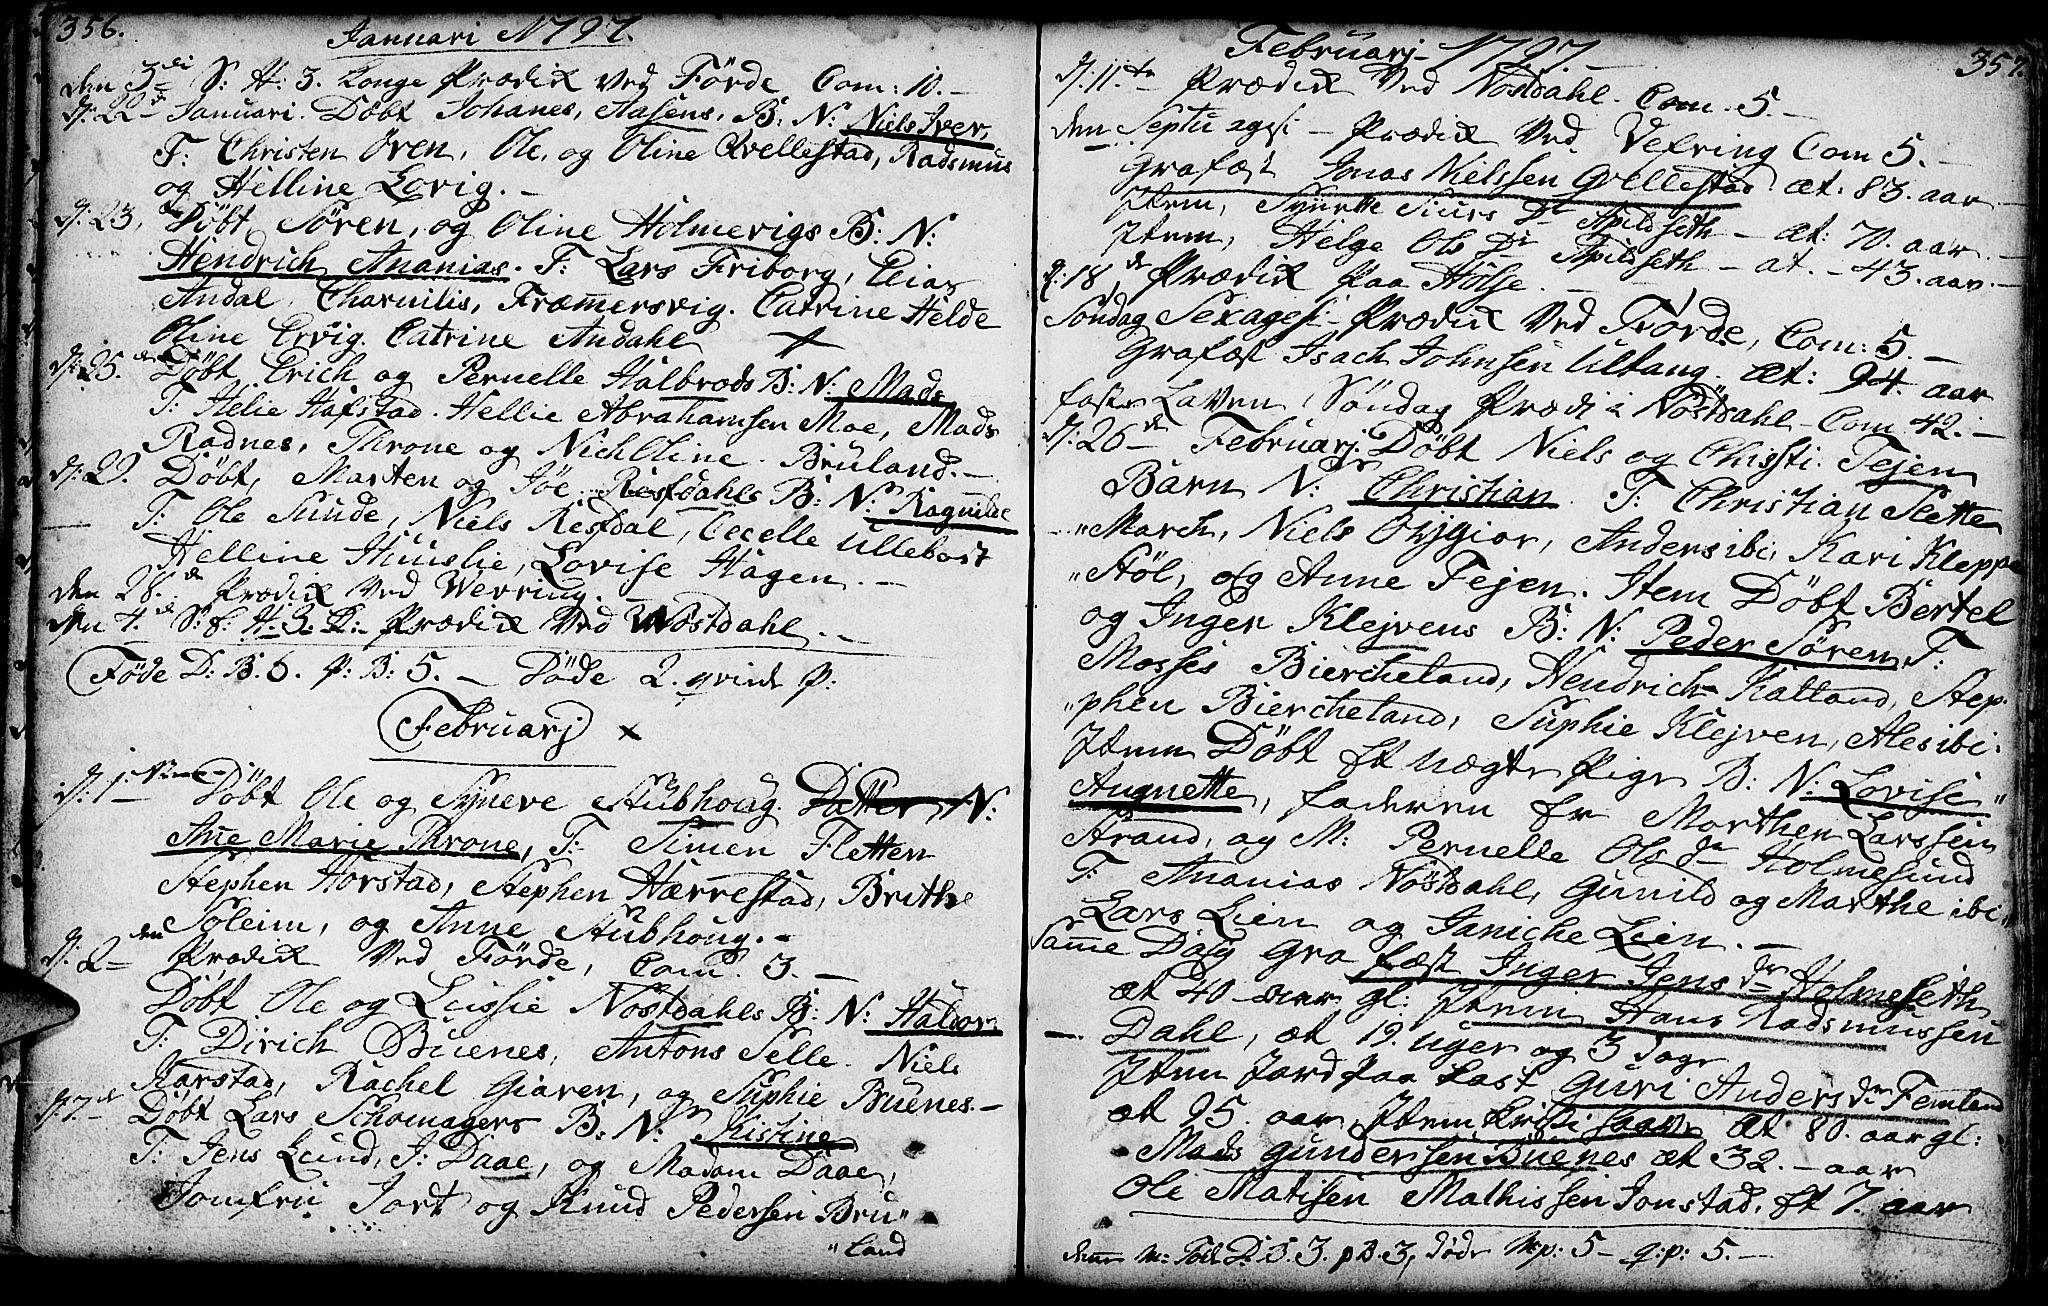 356.
Januari 1797.
den 3di S: H: 3. Konge Prædik Ved Förde Com: 10.
d: 22d Januari. Döbt Johanes, Aasens, B: N: Niels Iver,
T: Christen Ören, Ole, og Oline Qvellestad, Radsmus
og Helline Lovig.
d: 23, Döbt, Sören, og Oline Holmevigs B: N:
Hendrich Ananias. T: Lars Friborg, Elias
Andal, Charnilis, Fræmersvig. Catrine Helde
Oline Ervig. Catrine Andahl
d: 25.de Döbt. Erich og Pernelle Halbrods B: N: Mads
T: Helie Hafstad. Hellie Abrahamsen Moe, Mads
Radnes, Throne og Nichlline Bruland.
d: 29. Döbt, Marten og Jöe Risfdahls B: N: Ragnilde
T: Ole Sunde, Niels Risfdal, Cecelle Ullebost
Helline Huuslie, Lovise Hagen.
den 28.d Prædik Ved Werring.
den 4.d S: f: H: 3. K: Prædik Ved Nöstdahl.
Föde D: B. 6. P: B: 5. Döde 2. qvinde P:
Februarj
d: 1. Döbt Ole og Syneve Aubhoug Datter N:
Ane Marie Throne, T: Simen Fletten
Stephen Horstad, Stephen Hærrestad, Brithe
Soleim, og Anne Aubhoug.
d: 2den Prædik Ved Förde, Com. 3.
Döbt Ole og Lussie Nöstdahls B: N: Haldor
T: Dirich Buenes, Antons Selle. Niels
Karstad, Rachel Giaren, og Suphie Buenes.
d: 7d Döbt Lars Schomagers B: N: Kistine
T: Jens Lund, J: Daae, og Madam Daae,
Jomfru Jort og Knud Pedersen Bru"
"land
Februarj 1797
357.
d: 11te Prædik Ved Nöstdahl. Com. 5.
den Septuagesi Prædik Ved Vefring Com 5.
Grafæst Jonas Nielssen Qvellestad æt: 83. aar
Item, Synette Siurs Dr Apildseth æt: 70. aar
Item, Helge Ols Dr Apildseth at. 43. aar.
d: 18d Prædik Paa Hölse.
Söndag Sexagesi Prædik Ved Förde, Com: 5.
Grafæst Isach Johnsen Ultang. æt: 94. aar
faste Laven Söndag Prædi i Nöstdahl Com 42.
d: 26de Februarj. Döbt Niels og Chissti. Tejen
Barn N: Christian. T: Christian Slette
"March, Niels Övygior, Anders ibi, Kari Kleppe
"Stöl, og Anne Tejen. Item Döbt Bertel
og Inger Klejvens B: N: Peder Sören, T:
Mosses Biercheland, Hendrich Katland, Step.
"phen Biercheland, Suphie Klejven, Ales ibi:
Item Döbt Et uægte Pige B: N: Lovise"
Augnette, faderen Er Morthen Larssen
Strand, og M: Pernelle Ols Dr Holmesund
T: Ananias Nöstdahl, Gunild og Marthe ibi"
Lars Lien og Janiche Lien.
Samme Dag Grafæst Inger Jens dr Holmeseth
æt 40 aar gl: Item Hans Radsmussen
Dahl, æt 19. uger og 3 Dage
Item Jord Paa Kast Guri Anders dr Femland
æt 95. aar, Item Krissi æt 80. aar gl:
Mads Gundersen Buenes æt 32. aar
Ole Matisen Mathissen Jonstad, Et 7. aar
denne M: Föd D: B. 3. p B. 3, döde M p: 5 q: p: 5.